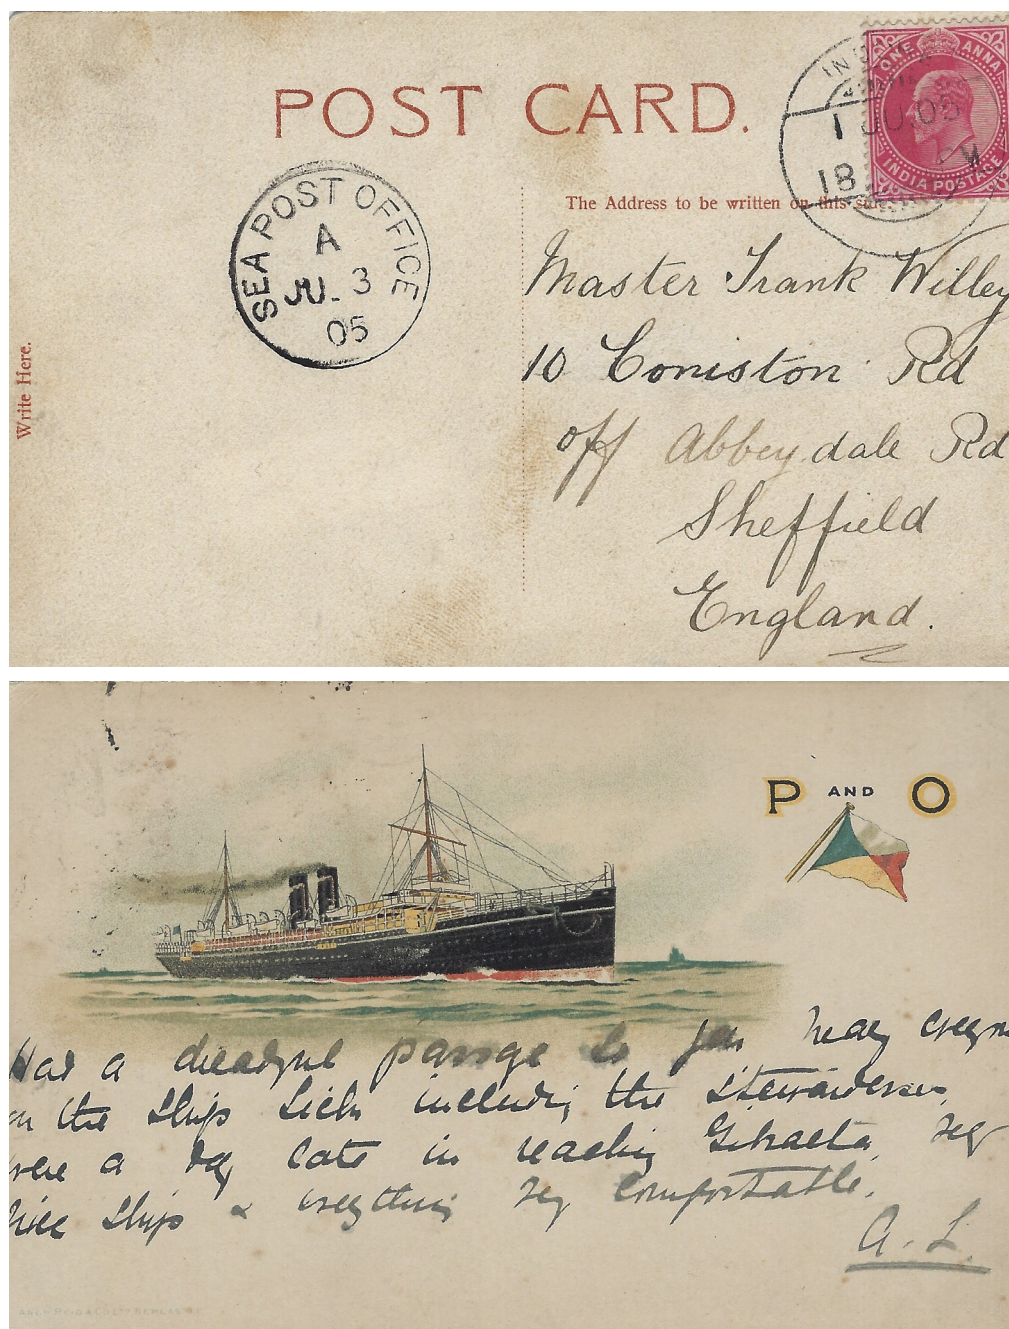 POST CARD.
ONE ANNA
INDIA POSTAGE
1 JU.05
18 PM
SEA POST OFFICE
A
JU_ 3
05
The Address to be written on this side
Write Here.
Master Frank Willey
10 Coniston Rd
off Abbeydale Rd
Sheffield
England.
P AND O
Had a dreadful passage so far
on the ship sick including the Stewardesses,
were a day late in reaching Gibralta,
nice ship & everything very comfortable.
A. L.